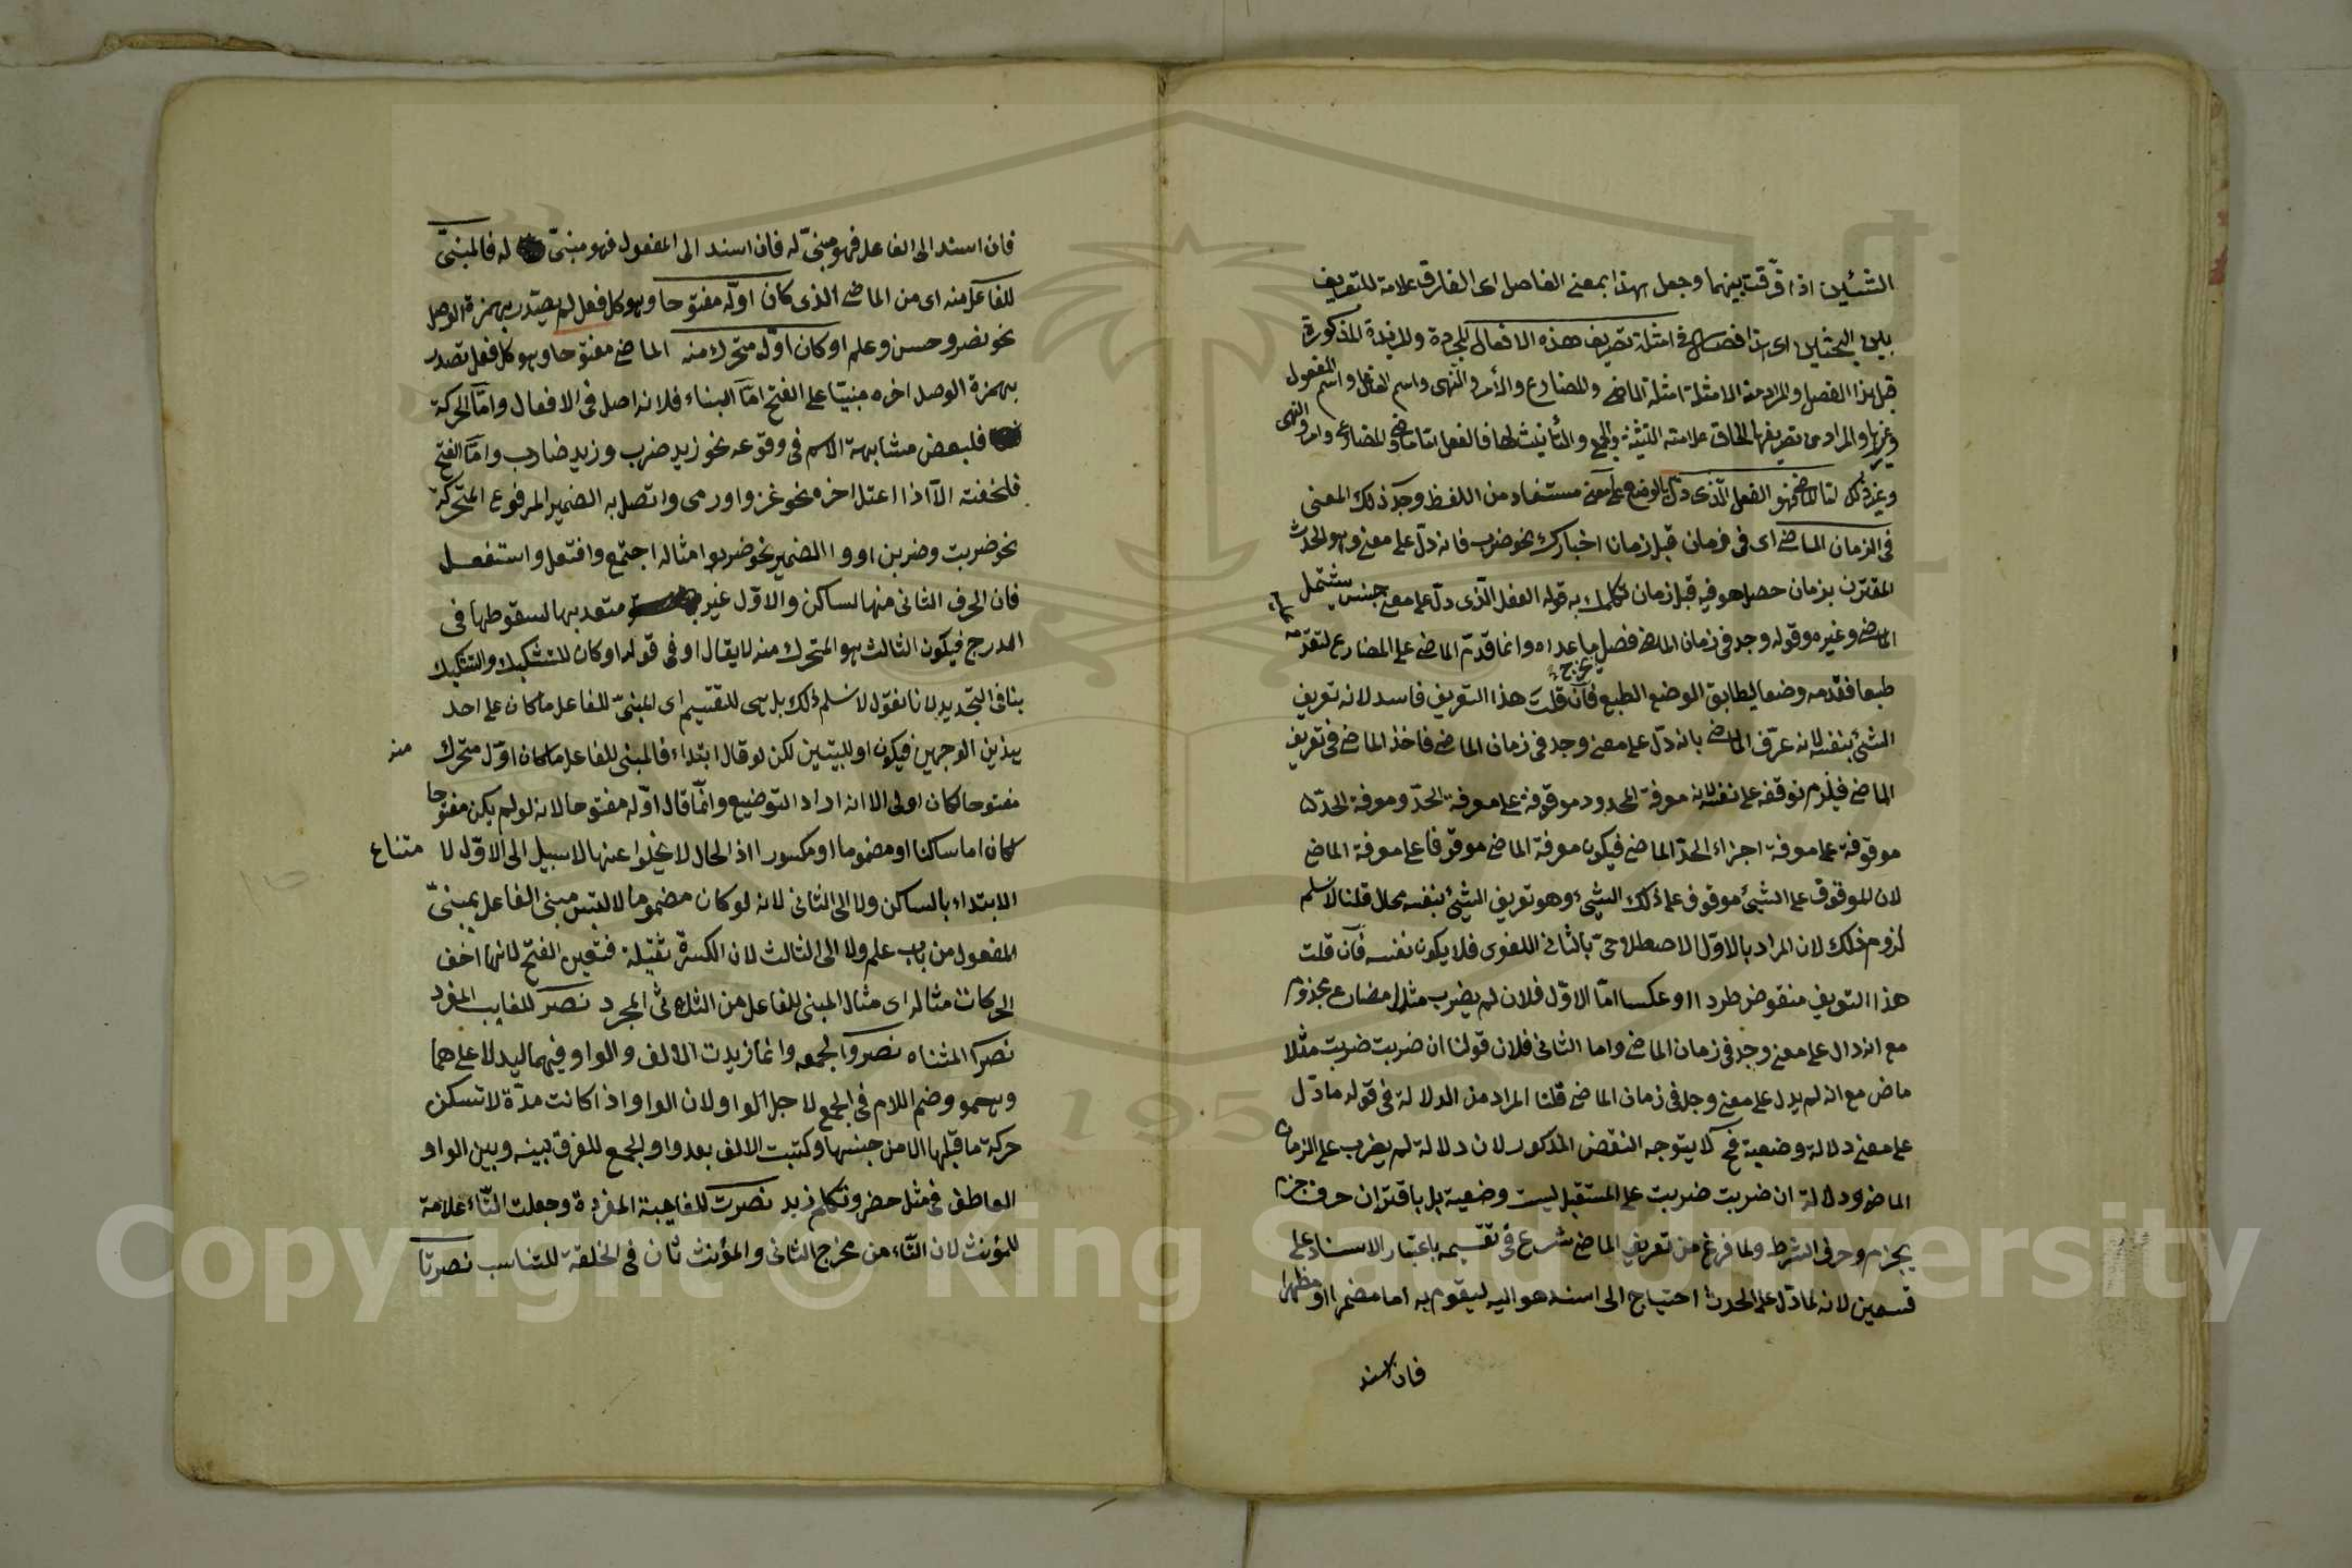 الشيئين اذا فرّقت بينهما وجعل هذا بمعنى الفاصل اى الفارق علامة للتعريف
بين البحثين اى هذا فصل فى امثلة تصريف هذه الافعال المجردة والمزيدة المذكورة
قبل هذا الفصل والمراد من الامثلة امثلة الماضى والمضارع والأمر والنهى واسم الفاعل واسم المفعول
وغيرها والمراد من تصريفها الحاق علامته التثنية والجمع والتأنيث لها فالفعل اما ماض والمضارع وامر والنهى
وغير ذلك اما الماضى فهو الفعل الّذى دلّ بالوضع على معنى مستفاد من اللفظ وجد ذلك المعنى
فى الزمان الماضى اى فى زمان قبل زمان اخبارك نحو ضرب فانه دلّ على معنى وهو الحدث
المقترن بزمان حصل هو فيه قبل زمان تكلمك به قوله الفعل الّذى دلّ على معنى جنس يشتمل
الماضى وغيره وقوله وجد فى زمان الماضى فصل يخرج ما عداه وانما قدّم الماضى على المضارع لتقدّمه
طبعا فقدمه وضعا ليطابق الوضع الطبع فان قلت هذا التعريف فاسد لانه تعريف
الشئ بنفسه لانه عرّف الماضى بانه دلّ على معنى وجد فى زمان الماضى فاخذ الماضى فى تعريف
الماضى فيلزم توقفه على نفسه لانه معرفة المحدود موقوفة على معرفة الحدّ ومعرفة الحدّ
موقوفة على معرفة اجزاء الحدّ الماضى فيكون معرفة الماضى موقوفا على معرفة الماضى
لان الموقوف على الشئ موقوف على ذلك الشئ وهو تعريف الشئ بنفسه محال قلنا لا نسلم
لزوم ذلك لان المراد بالاول الاصطلاحىّ بالثانى اللغوى فلا يكون نفسه فان قلت
هذا التعريف منقوض طردا او عكسا امّا الاوّل فلان لم يضرب مثلا مضارع مجزوم
مع انه دال على معنى وجد فى زمان الماضى واما الثانى فلان قولنا ان ضربت ضربت مثلا
ماض مع انه لم يدل على معنى وجد فى زمان الماضى قلنا المراد من الدلالة فى قوله ما دلّ
على معنى دلالة وضعية فح لا يتوجه النقض المذكور لان دلالة لم يضرب على الزمان
الماضى ودلالة ان ضربت ضربت على المستقبل ليست وضعية بل باقتران حرف جزم
يجزم وحرف الشرط ولما فرغ من تعريف الماضى شرع فى تقسيمه باعتبار الاسناد على
قسمين لانه لما دلّ على الحدث احتياج الى اسند هو اليه ليقوم به اما مضمرا او مظهرا
فان اسند
فان اسند الى الفاعل فهو مبنىّ له فان اسند الى المفعول فهو مبنىّ له فالمبنىّ
للفاعل منه اى من الماضى الذى كان اوّله مفتوحا وهو كل فعل لم يصدّر بهمزة الوصل
نحو نصر وحسن وعلم او كان اوّل متحرك منه الماضى مفتوحا وهو كل فعل تصدر
بهمزة الوصل اخره مبنيّا على الفتح امّا البناء فلانه اصل فى الافعال وامّا الحركة
فلبعض مشابهة الاسم فى وقوعه نحو زيد ضرب وزيد ضارب وامّا الفتح
فلخفته الّا اذا اعتل اخره نحو غزوا ورمى واتصل به الضمير المرفوع المتحركة
نحو ضربت وضربن او واالضمير نحو ضربوا مثاله اجتمع وافتعل واستفعل
فان الحرف الثانى منها لساكن والاوّل غير متعد بها لسقوطها فى
الدرج فيكون الثالث هو المتحرك منه لا يقال او فى قوله او كان للتشكيك والتشكيك
ينافى التحديد لانا نقول لا نسلم ذلك بل هى للتقسيم اى المبنىّ للفاعل ما كان على احد
هذين الوجهين فيكون او للبيتين لكن لو قال ابتداء فالمبنى للفاعل ما كان اوّل متحرك منه
مفتوحا لكان اولى الا انه اراد التوضيع وانّما قال اوّله مفتوحا لانه لو لم يكن مفتوحا
لكان اما ساكنا او مضموما او مكسورا اذ الحال لا يخلوا عنها لا سبيل الى الاوّل لا متناع
الابتداء بالساكن ولا الى الثانى لانه لو كان مضموما لالتبس مبنى الفاعل بمبنىّ
المفعول من باب علم ولا الى الثالث لان الكسرة ثقيلة فتعين الفتح لانها اخف
الحركات مثاله اى مثال المبنى للفاعل من الثلاثى المجرد نصر للغايب المفرد
نصرا المثناه نصروا لجمعه وانما زيدت الالف والواو فيهما ليدلا على هما
وهمو وضم اللام فى الجمع لاجل الواو لان الواو اذا كانت مدّة لا تسكن
حركة ما قبلها الا من جنسها وكتبت الالف بعد واو الجمع للفرق بينه وبين الواو
العاطف فى مثل حضر وتكلم زيد نصرت للغايبة المفردة وجعلت التّاء علامة
للمؤنث لان التّاء من مخرج الثانى والمؤنث ثان فى الخلقة للتناسب نصرتا
Copyright © King Saud University
1957